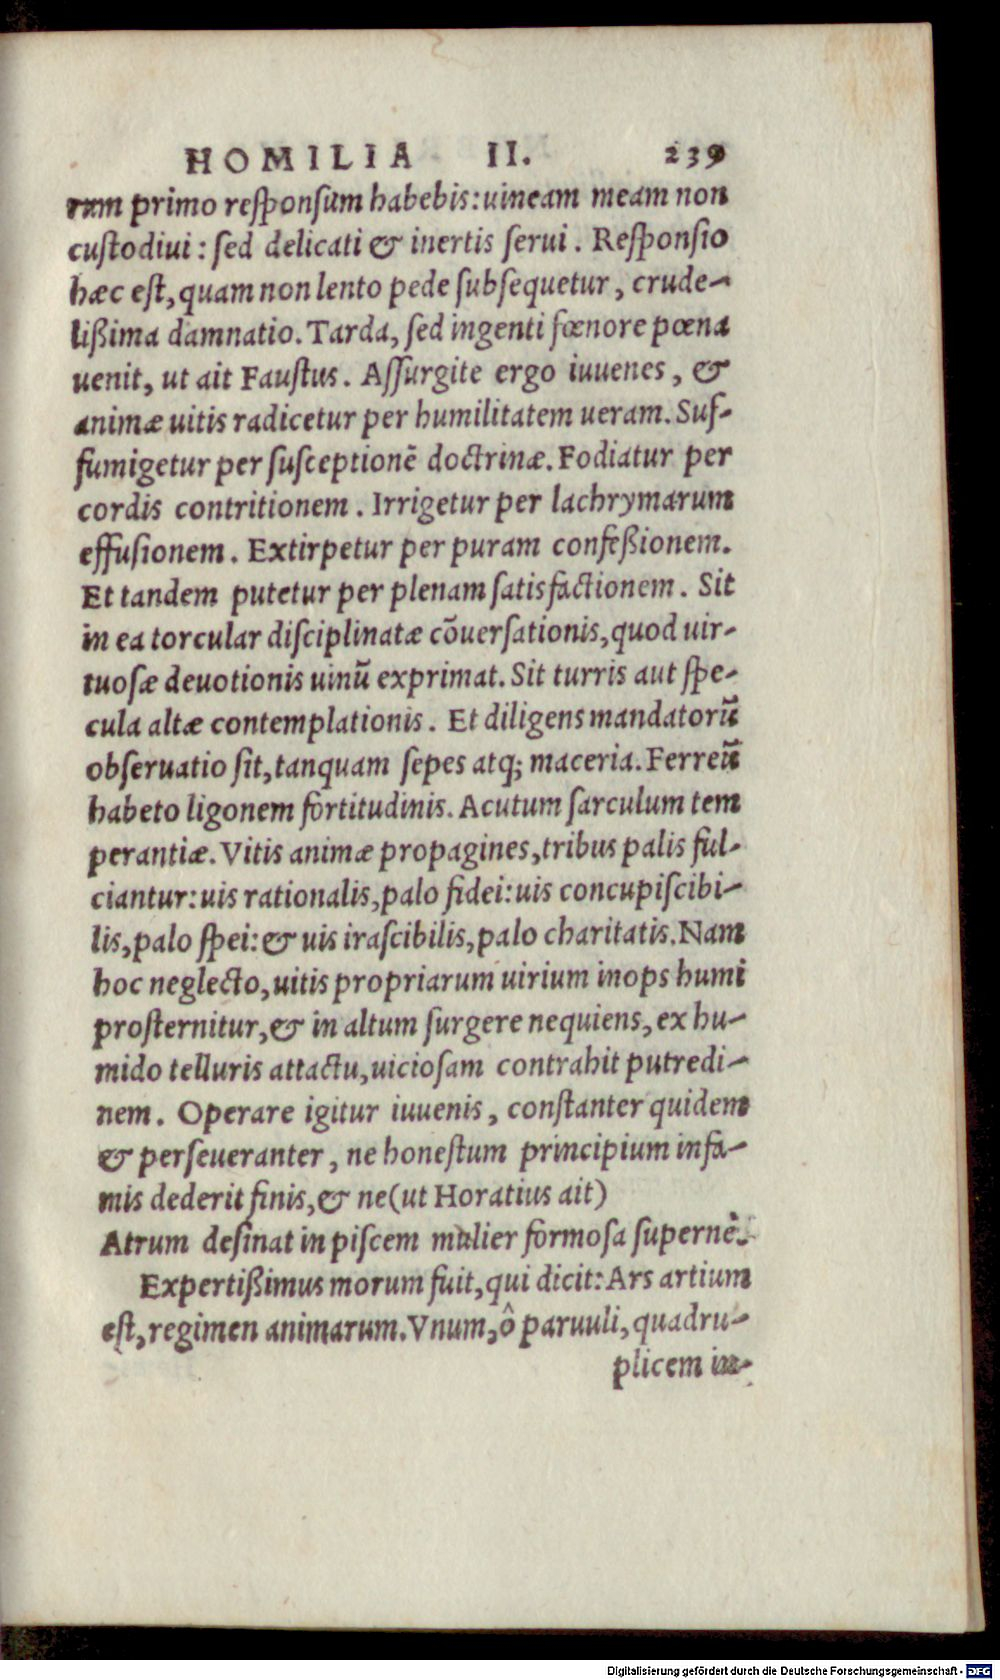 HOMILIA II. 239
rum primo responsum habebis: uineam meam non
custodiui: sed delicati & inertis serui. Responsio
hæc est, quam non lento pede subsequetur, crude-
lißima damnatio. Tarda, sed ingenti fœnore pœna
uenit, ut ait Faustus. Assurgite ergo iuuenes, &
animæ uitis radicetur per humilitatem ueram. Suf-
fumigetur per susceptionē doctrinæ. Fodiatur per
cordis contritionem. Irrigetur per lachrymarum
effusionem. Extirpetur per puram confeßionem.
Et tandem putetur per plenam satisfactionem. Sit
in ea torcular disciplinatæ cōuersationis, quod uir-
tuosæ deuotionis uinū exprimat. Sit turris aut spe-
cula altæ contemplationis. Et diligens mandatorū
obseruatio sit, tanquam sepes atq; maceria. Ferreū
habeto ligonem fortitudinis. Acutum sarculum tem
perantiæ. Vitis animæ propagines, tribus palis ful-
ciantur: uis rationalis, palo fidei: uis concupiscibi-
lis, palo spei: & uis irascibilis, palo charitatis. Nam
hoc neglecto, uitis propriarum uirium inops humi
prosternitur, & in altum surgere nequiens, ex hu-
mido telluris attactu, uiciosam contrahit putredi-
nem. Operare igitur iuuenis, constanter quidem
& perseueranter, ne honestum principium infa-
mis dederit finis, & ne (ut Horatius ait)
Atrum desinat in piscem mulier formosa supernè.
Expertißimus morum fuit, qui dicit: Ars artium
est, regimen animarum. Vnum, ô paruuli, quadru-
plicem in-
Digitalisierung gefördert durch die Deutsche Forschungsgemeinschaft - DFG